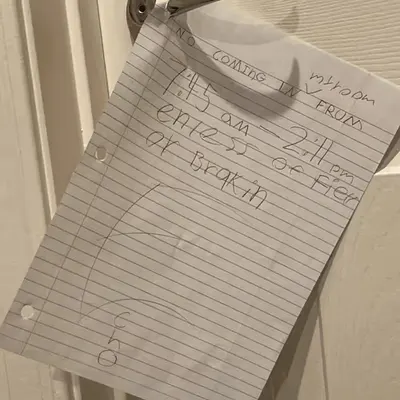 myroom
NO COMING IN FROM
7:45 am - 2:11 pm
enless of Fier
or Brakin
c
h
o